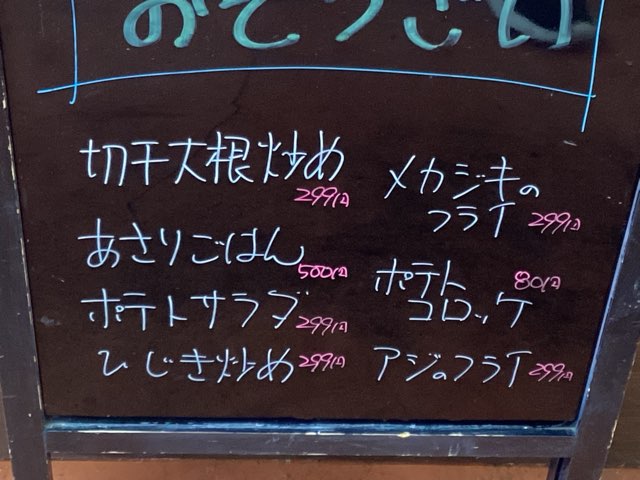 おそうざい
切干大根炒め
299円
あさりごはん
500円
ポテトサラダ
299円
ひじき炒め 299円
メカジキの
フライ 299円
ポテト 80円
コロッケ
アジのフライ 299円